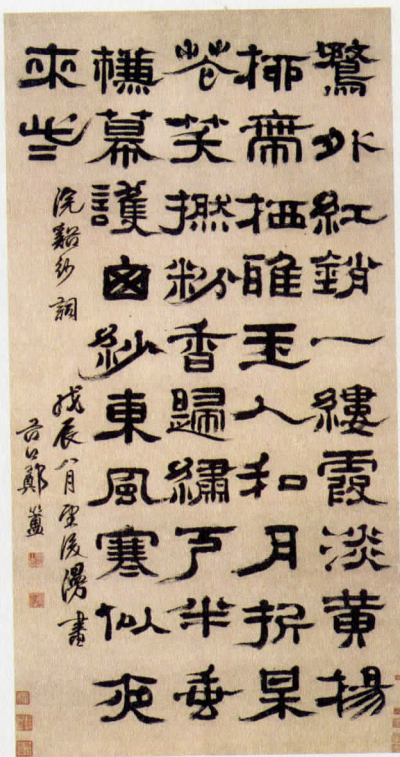 鶩外紅銷一縷霞淡黃楊
桺帶栖雅玉人和月折某
花笑撚粉香歸繡戶半垂
幕護囱紗東風寒似夜
來些
浣谿紗詞 戊辰八月望後漫書
谷口鄭簠